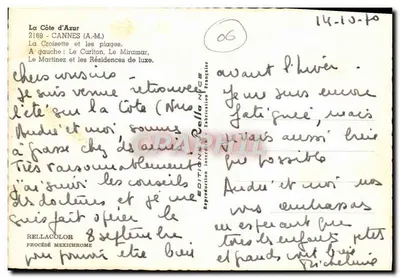 La Côte d'Azur
2169 - CANNES (A.-M.)
La Croisette et les plages.
A gauche : Le Carlton, Le Miramar,
Le Martinez et les Résidences de luxe.
14-10-70
06
chers cousins -
Je suis venue retrouver
l'été sur la Côte (Nous
André et moi sommes
à Grasse chez des amis)
Très raisonnablement
j'ai suivi les conseils
des docteurs et je me
suis fait opérer le
8 septembre
pour pouvoir être bien
RELLACOLOR
PROCÉDÉ MEXICHROME
EDITIONS Rella NICE
Reproduction interdite Fabrication Française
avant l'hiver.
Je me sens encore
fatiguée, mais
je vais aussi bien
que possible
André et moi nous
vous embrassons
en espérant que
tous les enfants petits
et grands vont bien
Micheline